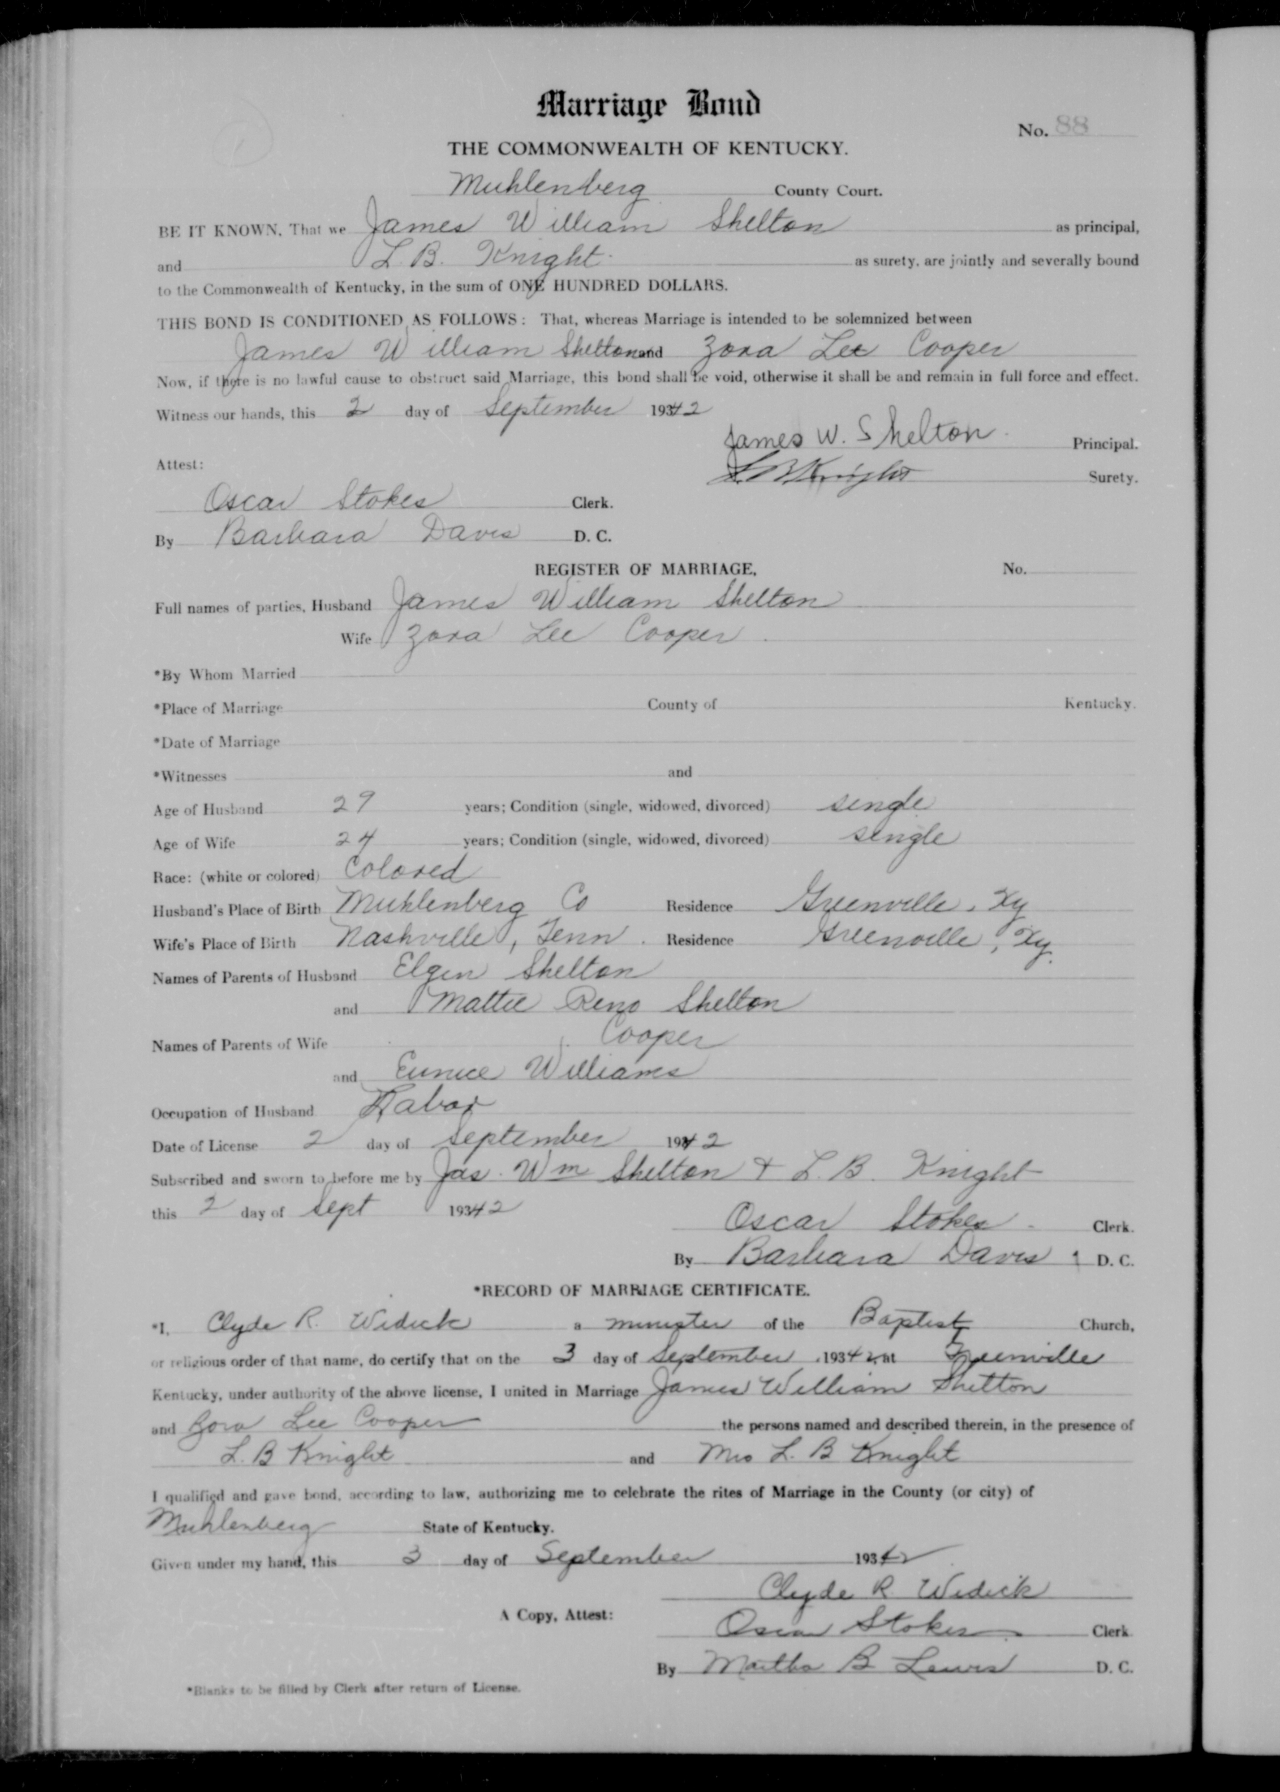 Marriage Bond
No. 88
THE COMMONWEALTH OF KENTUCKY.
Muhlenberg County Court.
BE IT KNOWN, That we James William Shelton as principal,
and L. B. Knight as surety, are jointly and severally bound
to the Commonwealth of Kentucky, in the sum of ONE HUNDRED DOLLARS.
THIS BOND IS CONDITIONED AS FOLLOWS: That, whereas Marriage is intended to be solemnized between
James William Shelton and Zora Lee Cooper
Now, if there is no lawful cause to obstruct said Marriage, this bond shall be void, otherwise it shall be and remain in full force and effect.
Witness our hands, this 2 day of September 19342
James W. Shelton Principal.
Attest:
L B Knight Surety.
Oscar Stokes Clerk.
By Barbara Davis D. C.
REGISTER OF MARRIAGE, No.
Full names of parties, Husband James William Shelton
Wife Zora Lee Cooper
*By Whom Married
*Place of Marriage County of Kentucky.
*Date of Marriage
*Witnesses and
Age of Husband 29 years; Condition (single, widowed, divorced) single
Age of Wife 24 years; Condition (single, widowed, divorced) single
Race: (white or colored) Colored
Husband's Place of Birth Muhlenberg Co Residence Greenville, Ky
Wife's Place of Birth Nashville, Tenn. Residence Greenville, Ky.
Names of Parents of Husband Elgin Shelton
and Mattie Reno Shelton
Names of Parents of Wife Cooper
and Eunice Williams
Occupation of Husband Labor
Date of License 2 day of September 19342
Subscribed and sworn to before me by Jas. Wm Shelton & L. B. Knight
this 2 day of Sept 19342
Oscar Stokes Clerk.
By Barbara Davis D. C.
*RECORD OF MARRIAGE CERTIFICATE.
*I, Clyde R. Widick a minister of the Baptist Church,
or religious order of that name, do certify that on the 3 day of September, 19342, at Greenville
Kentucky, under authority of the above license, I united in Marriage James William Shelton
and Zora Lee Cooper the persons named and described therein, in the presence of
L. B Knight and Mrs L. B Knight
I qualified and gave bond, according to law, authorizing me to celebrate the rites of Marriage in the County (or city) of
Muhlenberg State of Kentucky.
Given under my hand, this 3 day of September 19342
Clyde R. Widick
A Copy, Attest:
Oscar Stokes Clerk
By Martha B Lewis D. C.
*Blanks to be filled by Clerk after return of License.